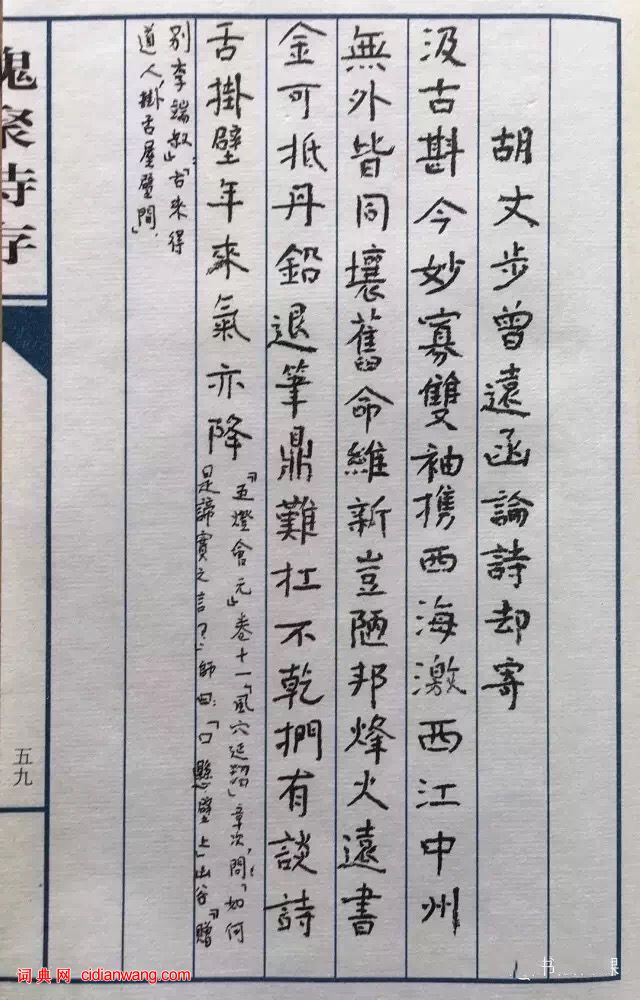 胡丈步曾遠函論詩却寄
汲古斟今妙寡雙袖携西海激西江中州
無外皆同壤舊命維新豈陋邦烽火遠書
金可抵丹鉛退筆鼎難扛不乾捫有談詩
舌掛壁年來氣亦降
『五燈會元』卷十一『風穴延昭』章次,問『如何
是諦實之言?』師曰:「口懸壁上」山谷『贈
别李端叔』:「古來得
道人,掛舌屋壁間」
槐聚詩存
五九
词典网 cidianwang.com
书 课